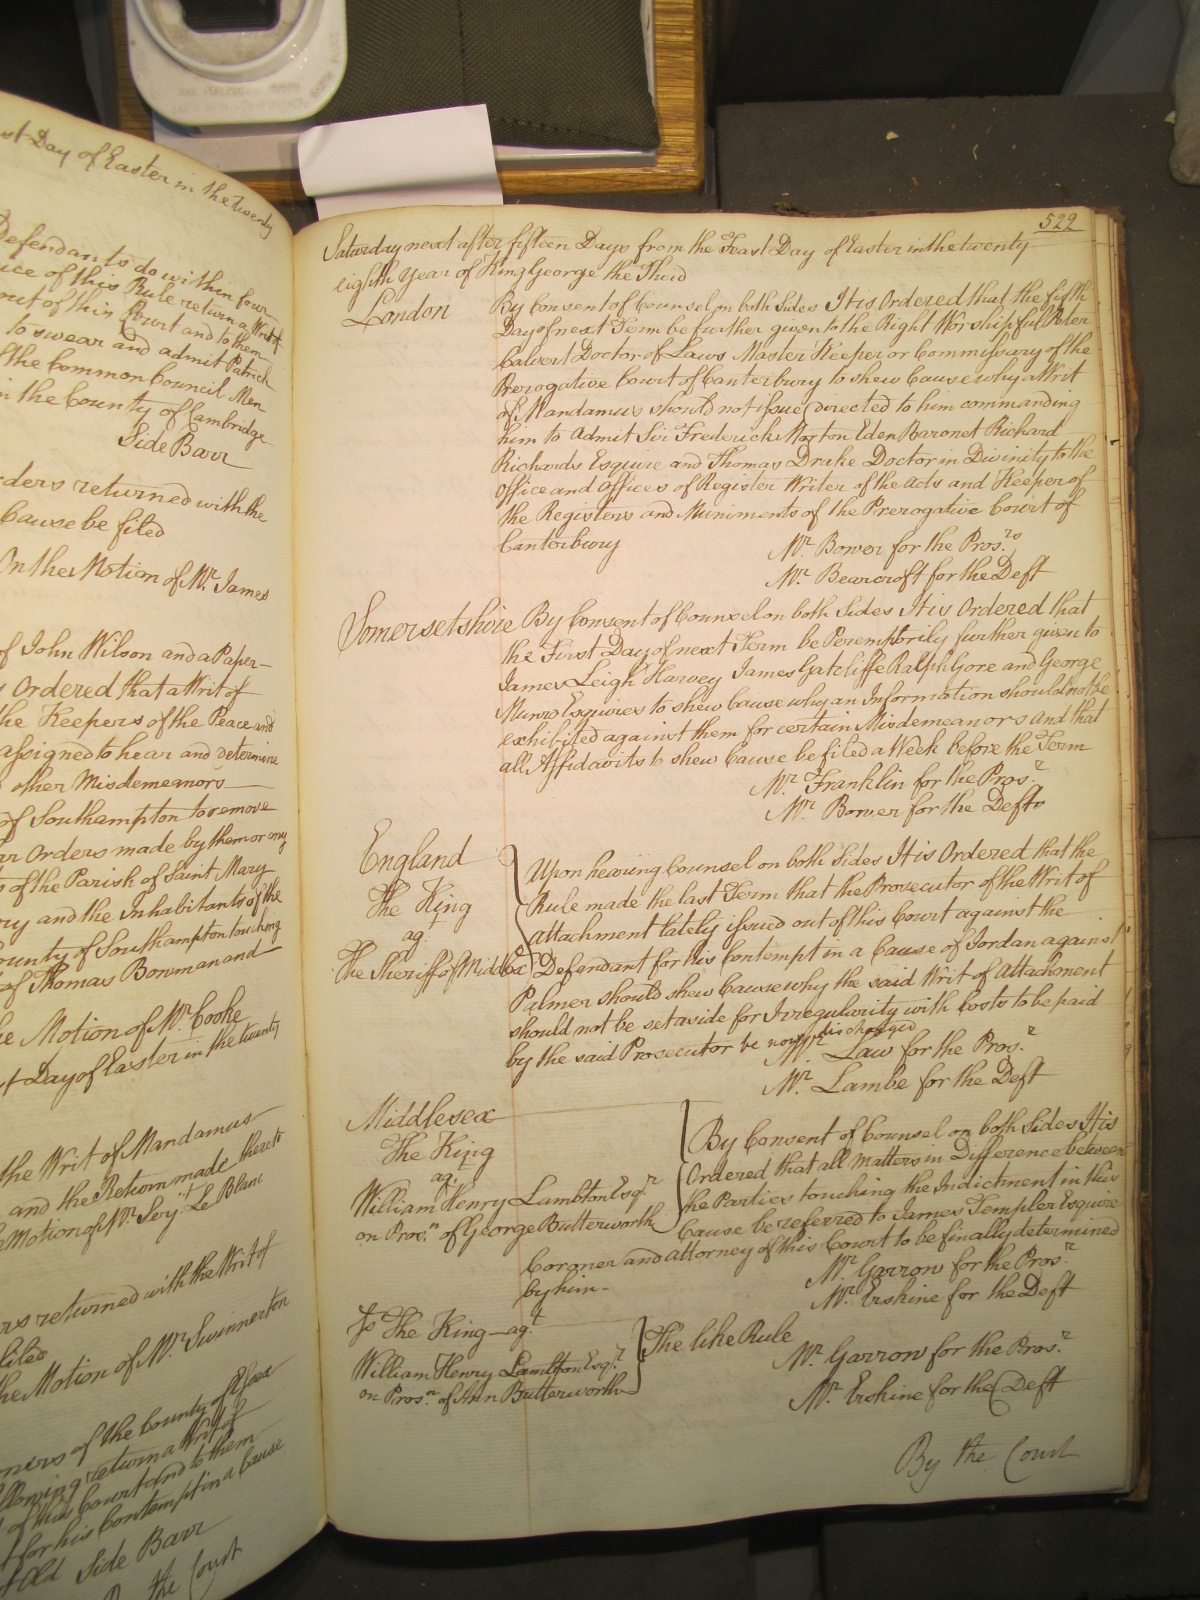 st Day of Easter in the twenty
Defendants do within four
ice of this Rule return a Writ
out of this Court and to them
to swear and admit Patrick
the Common Council Men
in the County of Cambridge
Side Barr
ders returned with the
Cause be filed
On the Motion of Mr. James
of John Wilson and a Paper
Ordered that a Writ of
the Keepers of the Peace and
assigned to hear and determine
other Misdemeanors
of Southampton to remove
or Orders made by them or any
of the Parish of Saint Mary
ry and the Inhabitants of the
ounty of Southampton touching
of Thomas Bowman and
he Motion of Mr. Cooke
t Day of Easter in the twenty
the Writ of Mandamus
and the Return made thereto
Motion of Mr. Serjt. Le Blanc
rs returned with the Writ of
filed
the Motion of Mr. Swinnerton
oners of the County of Essex
return a Writ of
of this Court and to them
for his Contempt in a Cause
Old Side Barr
the Court
522
Saturday next after fifteen Days from the Feast Day of Easter in the twenty
eighth Year of King George the Third
London By Consent of Counsel on both Sides It is Ordered that the fifth
Day of next Term be further given to the Right Worshipful Peter
Calvert Doctor of Laws Master Keeper or Commissary of the
Prerogative Court of Canterbury to shew Cause why a Writ
of Mandamus should not issue directed to him commanding
him to Admit Sir Frederick Morton Eden Baronet Richard
Richards Esquire and Thomas Drake Doctor in Divinity to the
Office and Offices of Register Writer of the Acts and Keeper of
the Registers and Muniments of the Prerogative Court of
Canterbury
Mr. Bower for the Pros.rs
Mr. Bearcroft for the Deft
Somersetshire By Consent of Counsel on both Sides It is Ordered that
the First Day of next Term be Peremptorily further given to
James Leigh Harvey James Gatcliffe Ralph Gore and George
Munro Esquires to shew Cause why an Information should not be
exhibited against them for certain Misdemeanors and that
all Affidavits to shew Cause be filed a Week before the Term
Mr. Franklin for the Pros.r
Mr. Bower for the Defts
England
The King
agt.
The Sheriff of Middx
Upon hearing Counsel on both Sides It is Ordered that the
Rule made the last Term that the Prosecutor of the Writ of
Attachment lately issued out of this Court against the
Defendant for his Contempt in a Cause of Jordan against
Palmer should shew Cause why the said Writ of Attachment
should not be set aside for Irregularity with Costs to be paid
by the said Prosecutor be now discharged
Mr. Law for the Pros.r
Mr. Lambe for the Deft
Middlesex
The King
agt.
William Henry Lambton Esq.r
on Pros.n of George Butterworth
By Consent of Counsel on both Sides It is
Ordered that all Matters in Difference between
the Parties touching the Indictment in this
Cause be referred to James Templer Esquire
Coroner and Attorney of this Court to be finally determined
by him
Mr. Garrow for the Pros.r
Mr. Erskine for the Deft
Ss The King agt.
William Henry Lambton Esq.r
on Pros.n of Ann Butterworth
The like Rule
Mr. Garrow for the Pros.r
Mr. Erskine for the Deft
By the Court